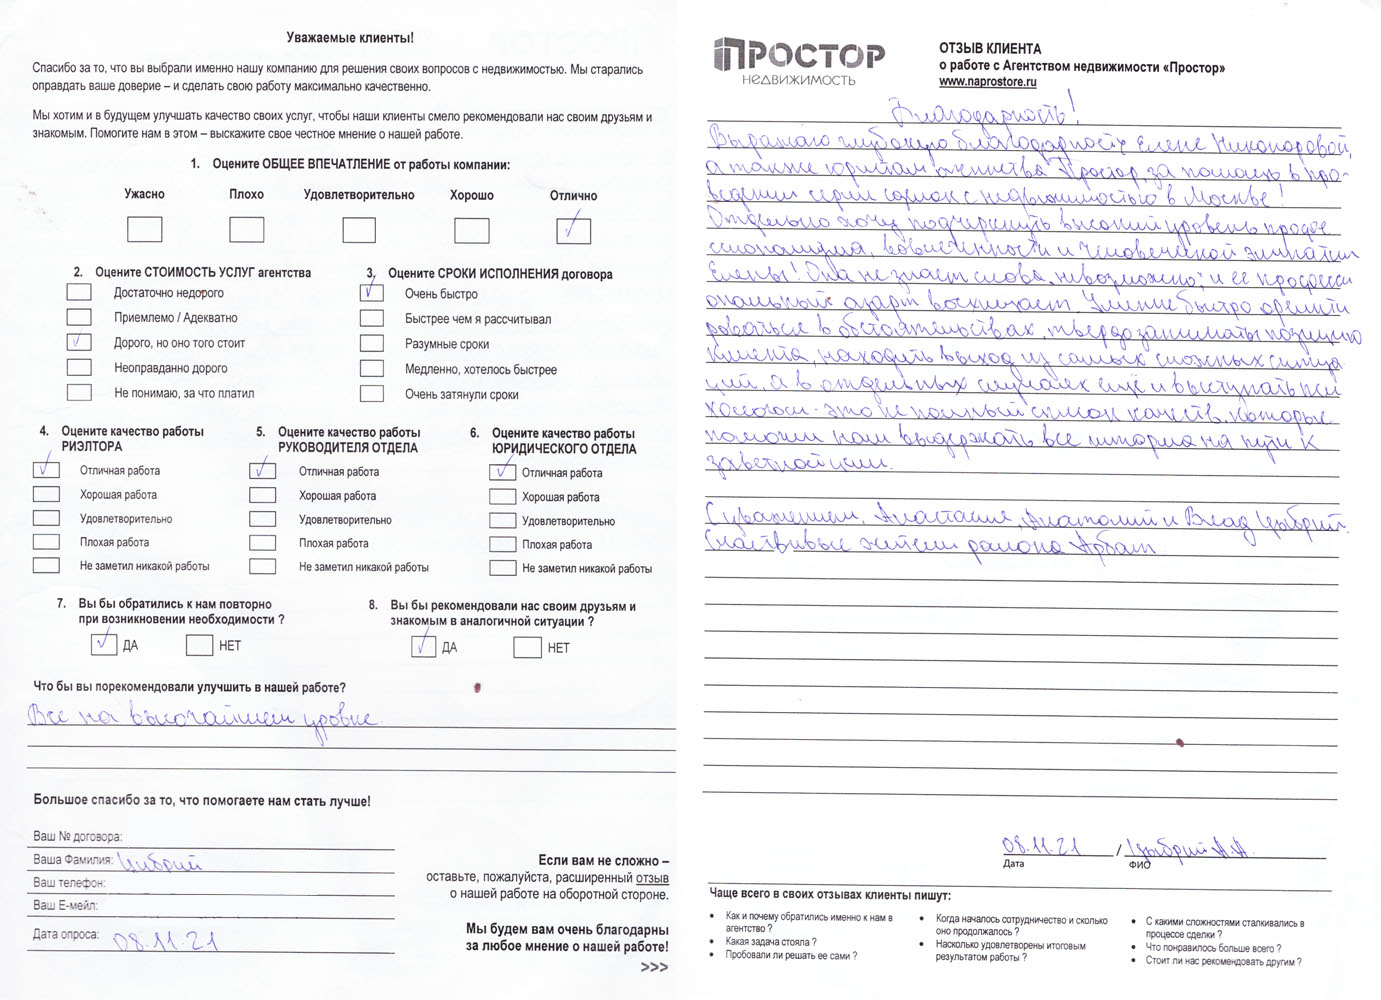 Уважаемые клиенты!
Спасибо за то, что вы выбрали именно нашу компанию для решения своих вопросов с недвижимостью. Мы старались
оправдать ваше доверие – и сделать свою работу максимально качественно.
Мы хотим и в будущем улучшать качество своих услуг, чтобы наши клиенты смело рекомендовали нас своим друзьям и
знакомым. Помогите нам в этом – выскажите свое честное мнение о нашей работе.
1. Оцените ОБЩЕЕ ВПЕЧАТЛЕНИЕ от работы компании:
Ужасно Плохо Удовлетворительно Хорошо Отлично
2. Оцените СТОИМОСТЬ УСЛУГ агентства
Достаточно недорого
Приемлемо / Адекватно
Дорого, но оно того стоит
Неоправданно дорого
Не понимаю, за что платил
3. Оцените СРОКИ ИСПОЛНЕНИЯ договора
Очень быстро
Быстрее чем я рассчитывал
Разумные сроки
Медленно, хотелось быстрее
Очень затянули сроки
4. Оцените качество работы
РИЭЛТОРА
Отличная работа
Хорошая работа
Удовлетворительно
Плохая работа
Не заметил никакой работы
5. Оцените качество работы
РУКОВОДИТЕЛЯ ОТДЕЛА
Отличная работа
Хорошая работа
Удовлетворительно
Плохая работа
Не заметил никакой работы
6. Оцените качество работы
ЮРИДИЧЕСКОГО ОТДЕЛА
Отличная работа
Хорошая работа
Удовлетворительно
Плохая работа
Не заметил никакой работы
7. Вы бы обратились к нам повторно
при возникновении необходимости ?
ДА НЕТ
8. Вы бы рекомендовали нас своим друзьям и
знакомым в аналогичной ситуации ?
ДА НЕТ
Что бы вы порекомендовали улучшить в нашей работе?
Все на высочайшем уровне
Большое спасибо за то, что помогаете нам стать лучше!
Ваш № договора:
Ваша Фамилия: Цыбрий
Ваш телефон:
Ваш Е-мейл:
Дата опроса: 08.11.21
Если вам не сложно –
оставьте, пожалуйста, расширенный отзыв
о нашей работе на оборотной стороне.
Мы будем вам очень благодарны
за любое мнение о нашей работе!
>>>
ПРОСТОР
НЕДВИЖИМОСТЬ
ОТЗЫВ КЛИЕНТА
о работе с Агентством недвижимости «Простор»
www.naprostore.ru
Благодарность!
Выражаю глубокую благодарность Елене Никоноровой,
а также юристам агентства Простор, за помощь в про-
ведении серии сделок с недвижимостью в Москве!
Отдельно хочу подчеркнуть высокий уровень профес
сионализма, вовлеченности и человеческой эмпатии
Елены! Она не знает слова "невозможно", и ее професси
ональный азарт восхищает. Умение быстро ориенти
роваться в обстоятельствах, твердо занимать позицию
клиента, находить выход из самых сложных ситуа
ций, а в отдельных случаях ещё и выступать пси
хологом - это не полный список качеств, которые
помогли нам выдержать все шторма на пути к
заветной цели.
С уважением, Анастасия, Анатолий и Влад Цыбрий.
Счастливые жители района Арбат.
08.11.21 / Цыбрий А.А.
Дата ФИО
Чаще всего в своих отзывах клиенты пишут:
• Как и почему обратились именно к нам в
агентство ?
• Какая задача стояла ?
• Пробовали ли решать ее сами ?
• Когда началось сотрудничество и сколько
оно продолжалось ?
• Насколько удовлетворены итоговым
результатом работы ?
• С какими сложностями сталкивались в
процессе сделки ?
• Что понравилось больше всего ?
• Стоит ли нас рекомендовать другим ?